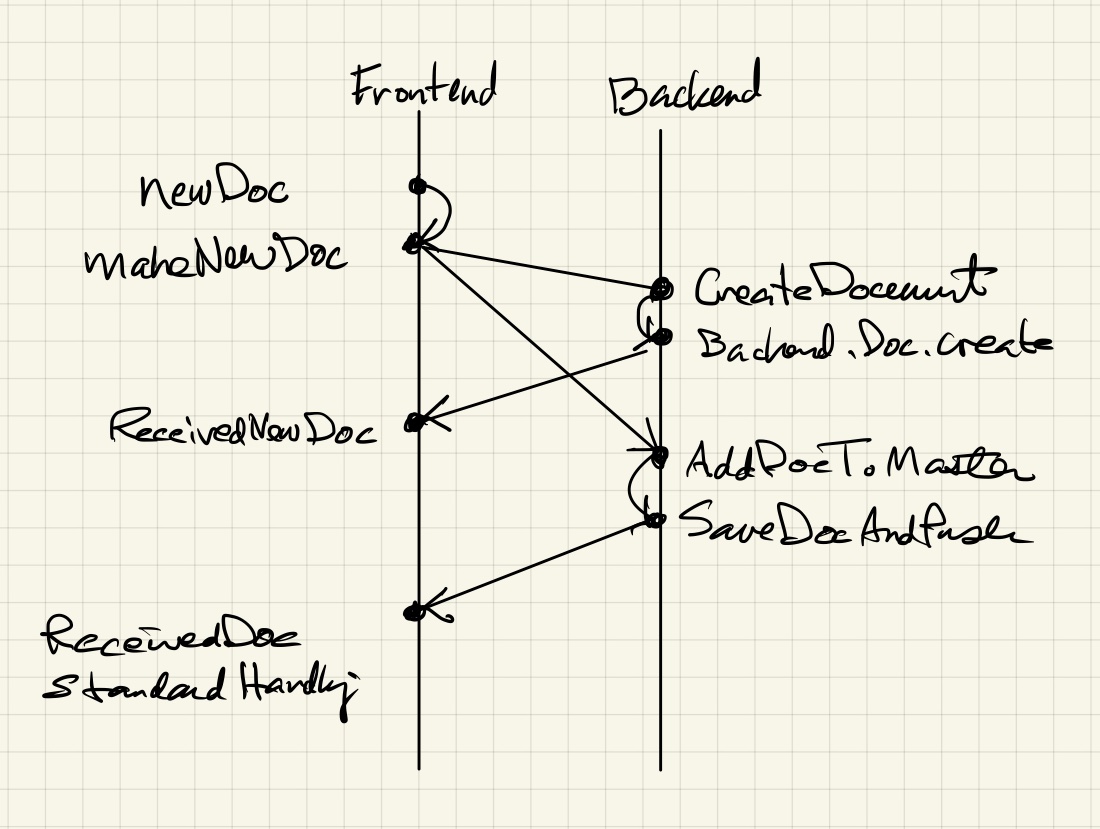 Frontend
Backend
NewDoc
MakeNewDoc
CreateDocument
Backend.Doc.create
ReceivedNewDoc
AddDocToMaster
SaveDocAndPush
ReceivedDoc
Standard Handling